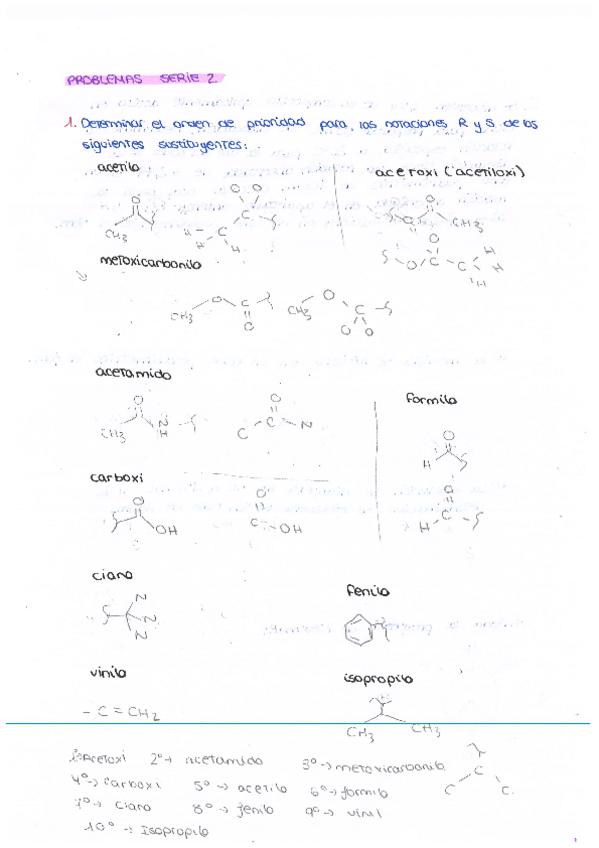 PROBLEMAS SERIE 2.
1. Determinar el orden de prioridad para las notaciones R y S de los
siguientes sustituyentes:
acetilo
acetoxi (acetiloxi)
O
CH3
O O
C
H H H
O
O CH3
O
O C C H H H
metoxicarbonilo
CH3 O C O
CH3 O C O O
acetamido
O
CH3 N H
O
C C N
formilo
O
H
O
H C
carboxi
O
OH
O
C OH
ciano
N
N
N
fenilo
vinilo
- C = CH2
isopropilo
H
CH3 CH3
1º Acetoxi 2º → acetamido 3º → metoxicarbonilo
4º → carboxi 5º → acetilo 6º → formilo
7º → ciano 8º → fenilo 9º → vinil
10º → Isopropilo
C
C C